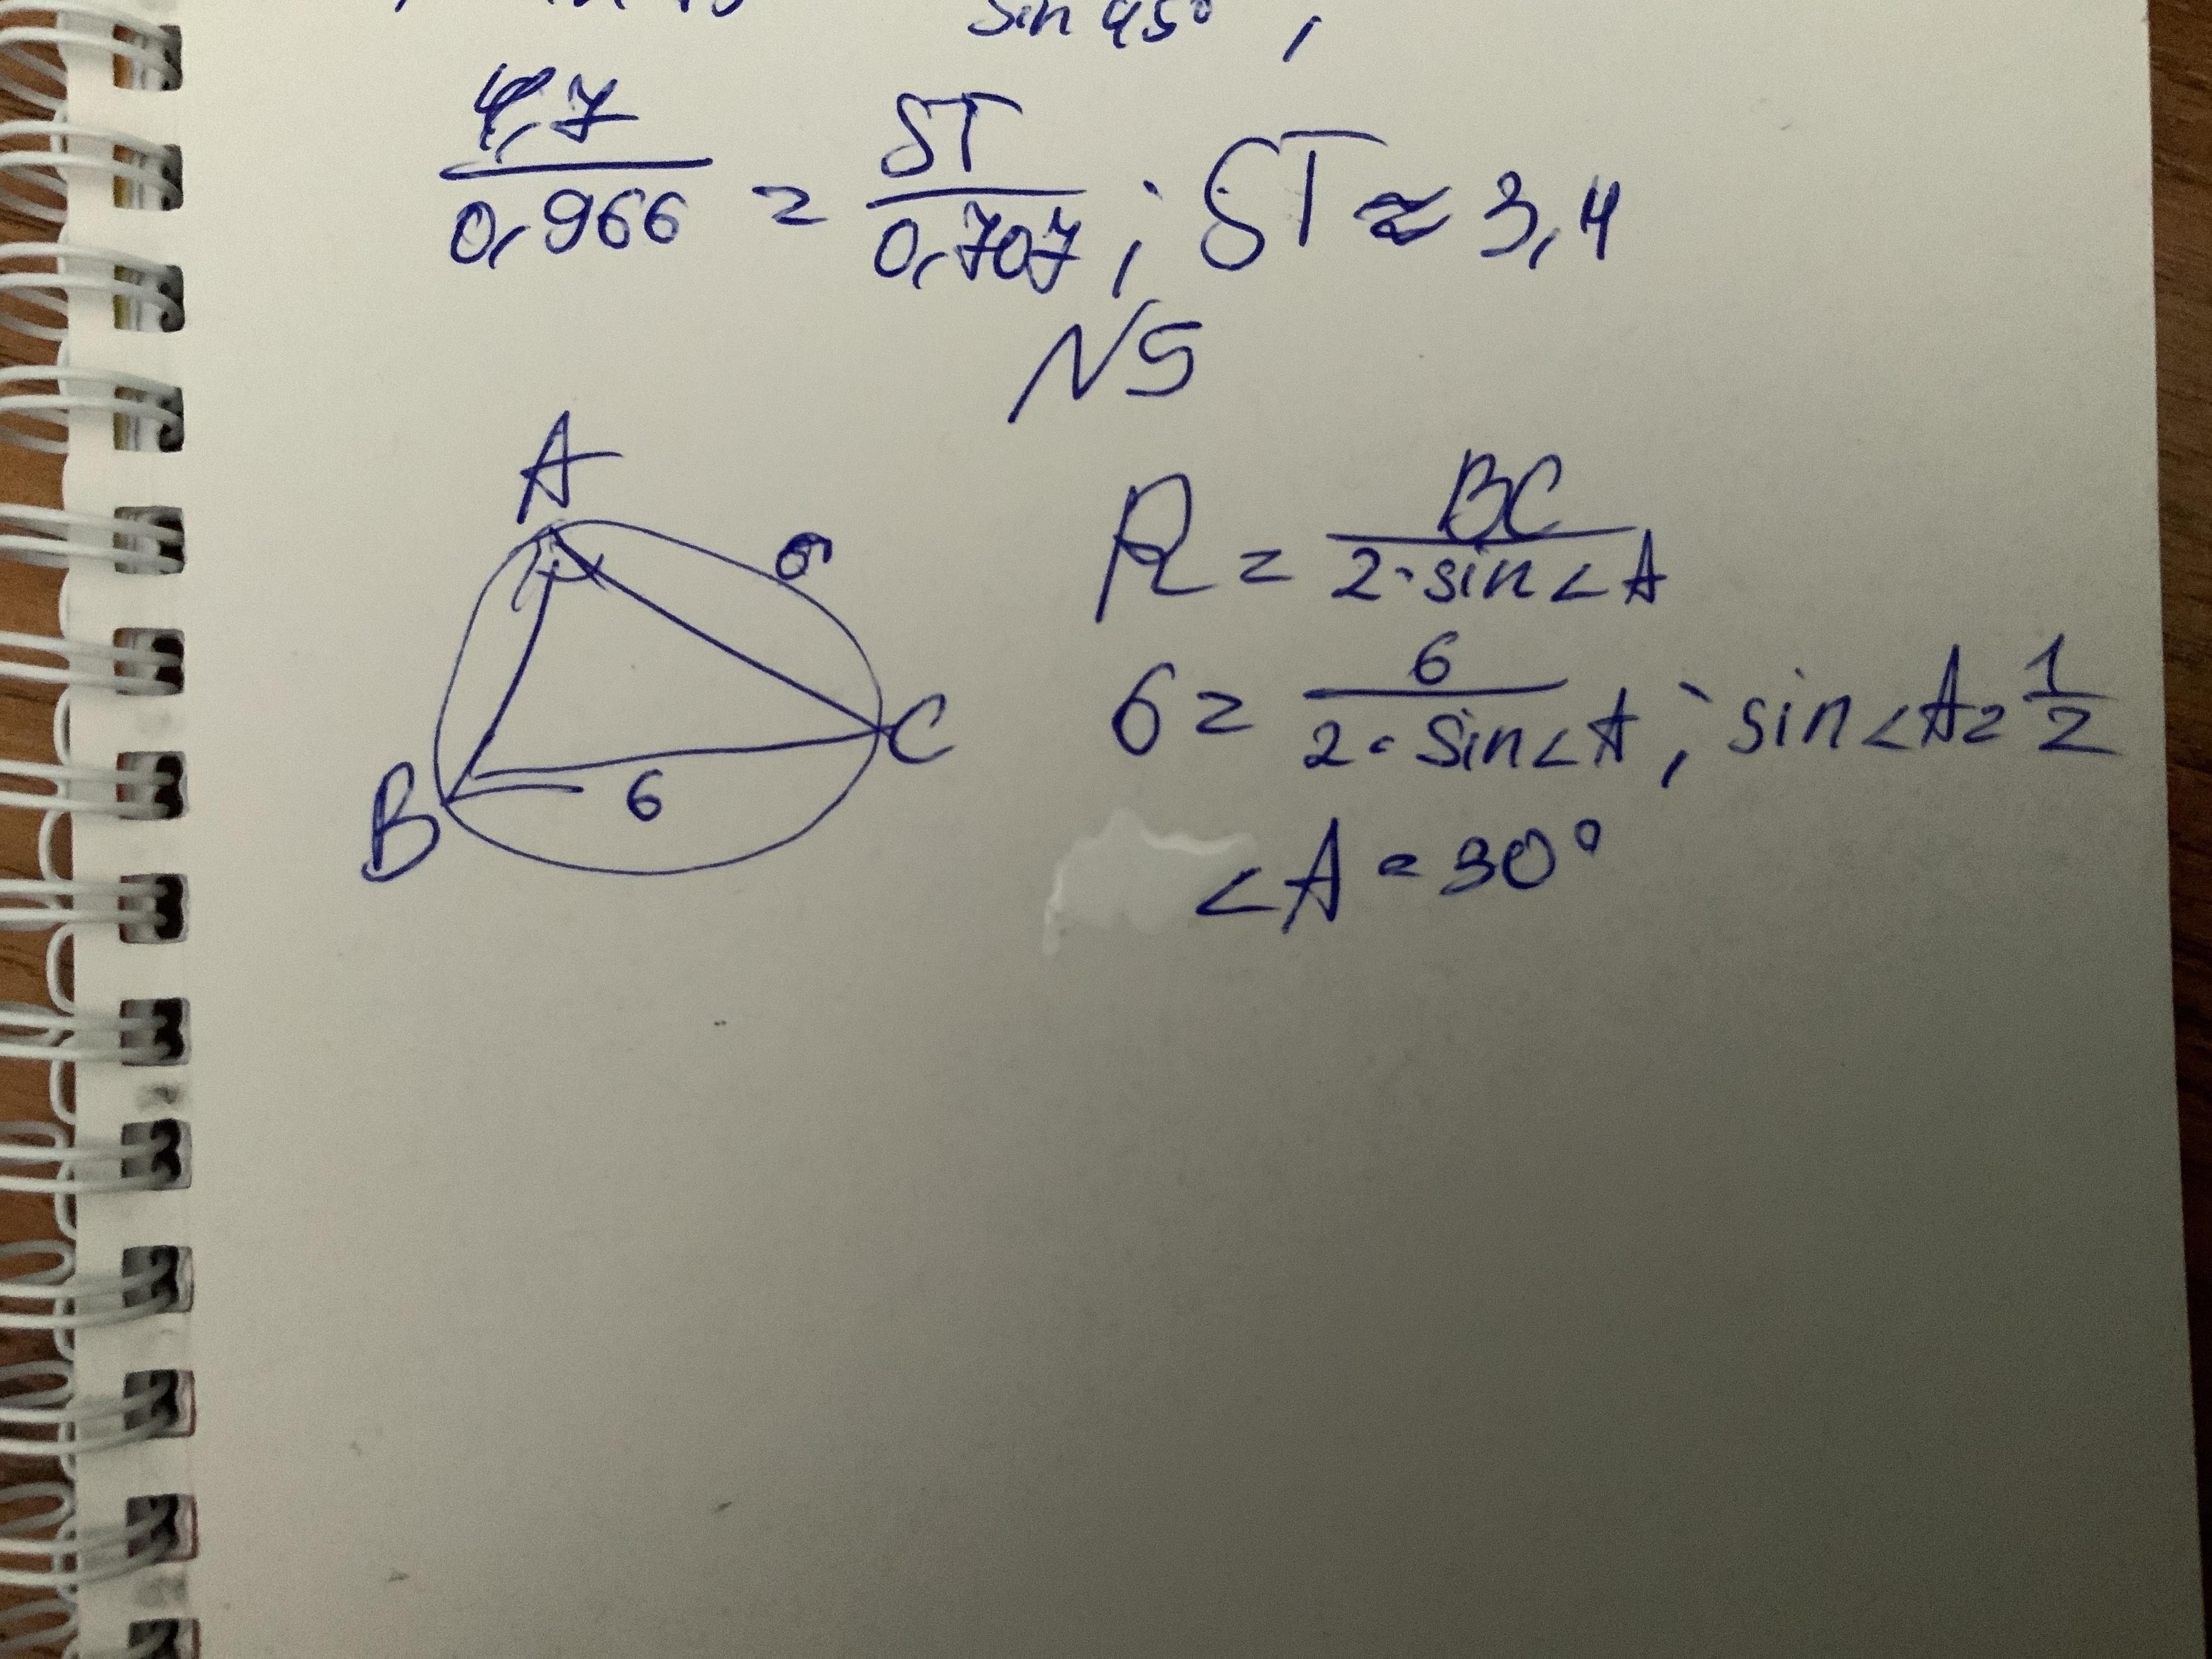 sin 45° ;
4,7/0,966 = ST/0,707 ; ST ≈ 3,4
N5
A
6
B
6
C
R = BC/2·sin∠A
6 = 6/2·sin∠A ; sin∠A = 1/2
∠A = 30°